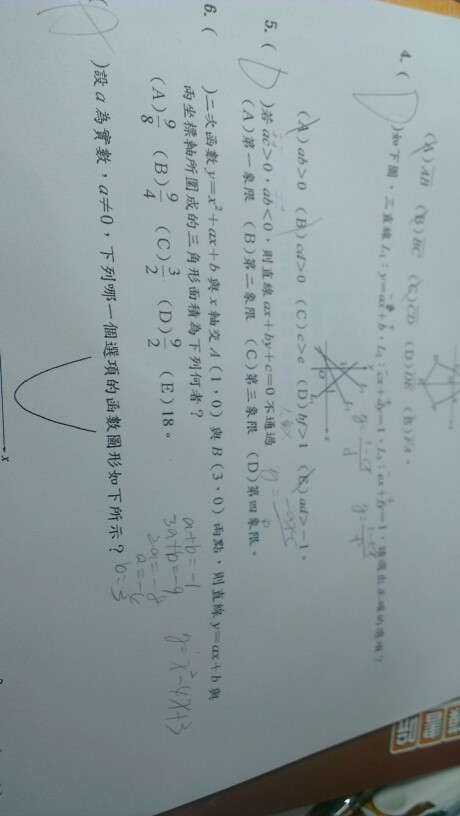 (A) AB (B) BC (C) CD (D) DE (E) EA。
4. ( D )如下圖,三直線L₁:y=ax+b、L₂:cx+dy=1、L₃:ex+fy=1,請選出正確的選項?
(A) ab>0 (B) cd>0 (C) c>e (D) bf>1 (E) ad>-1。
5. ( D )若ac>0,ab<0,則直線ax+by+c=0不通過
(A)第一象限 (B)第二象限 (C)第三象限 (D)第四象限。
6. ( )二次函數y=x²+ax+b與x軸交A(1,0)與B(3,0)兩點,則直線y=ax+b與
兩坐標軸所圍成的三角形面積為下列何者?
(A) 9/8 (B) 9/4 (C) 3/2 (D) 9/2 (E) 18。
a+b=-1
3a+b=-9
2a=-8
b=3
y=x²-4x+3
)設a為實數,a≠0,下列哪一個選項的函數圖形如下所示?
x